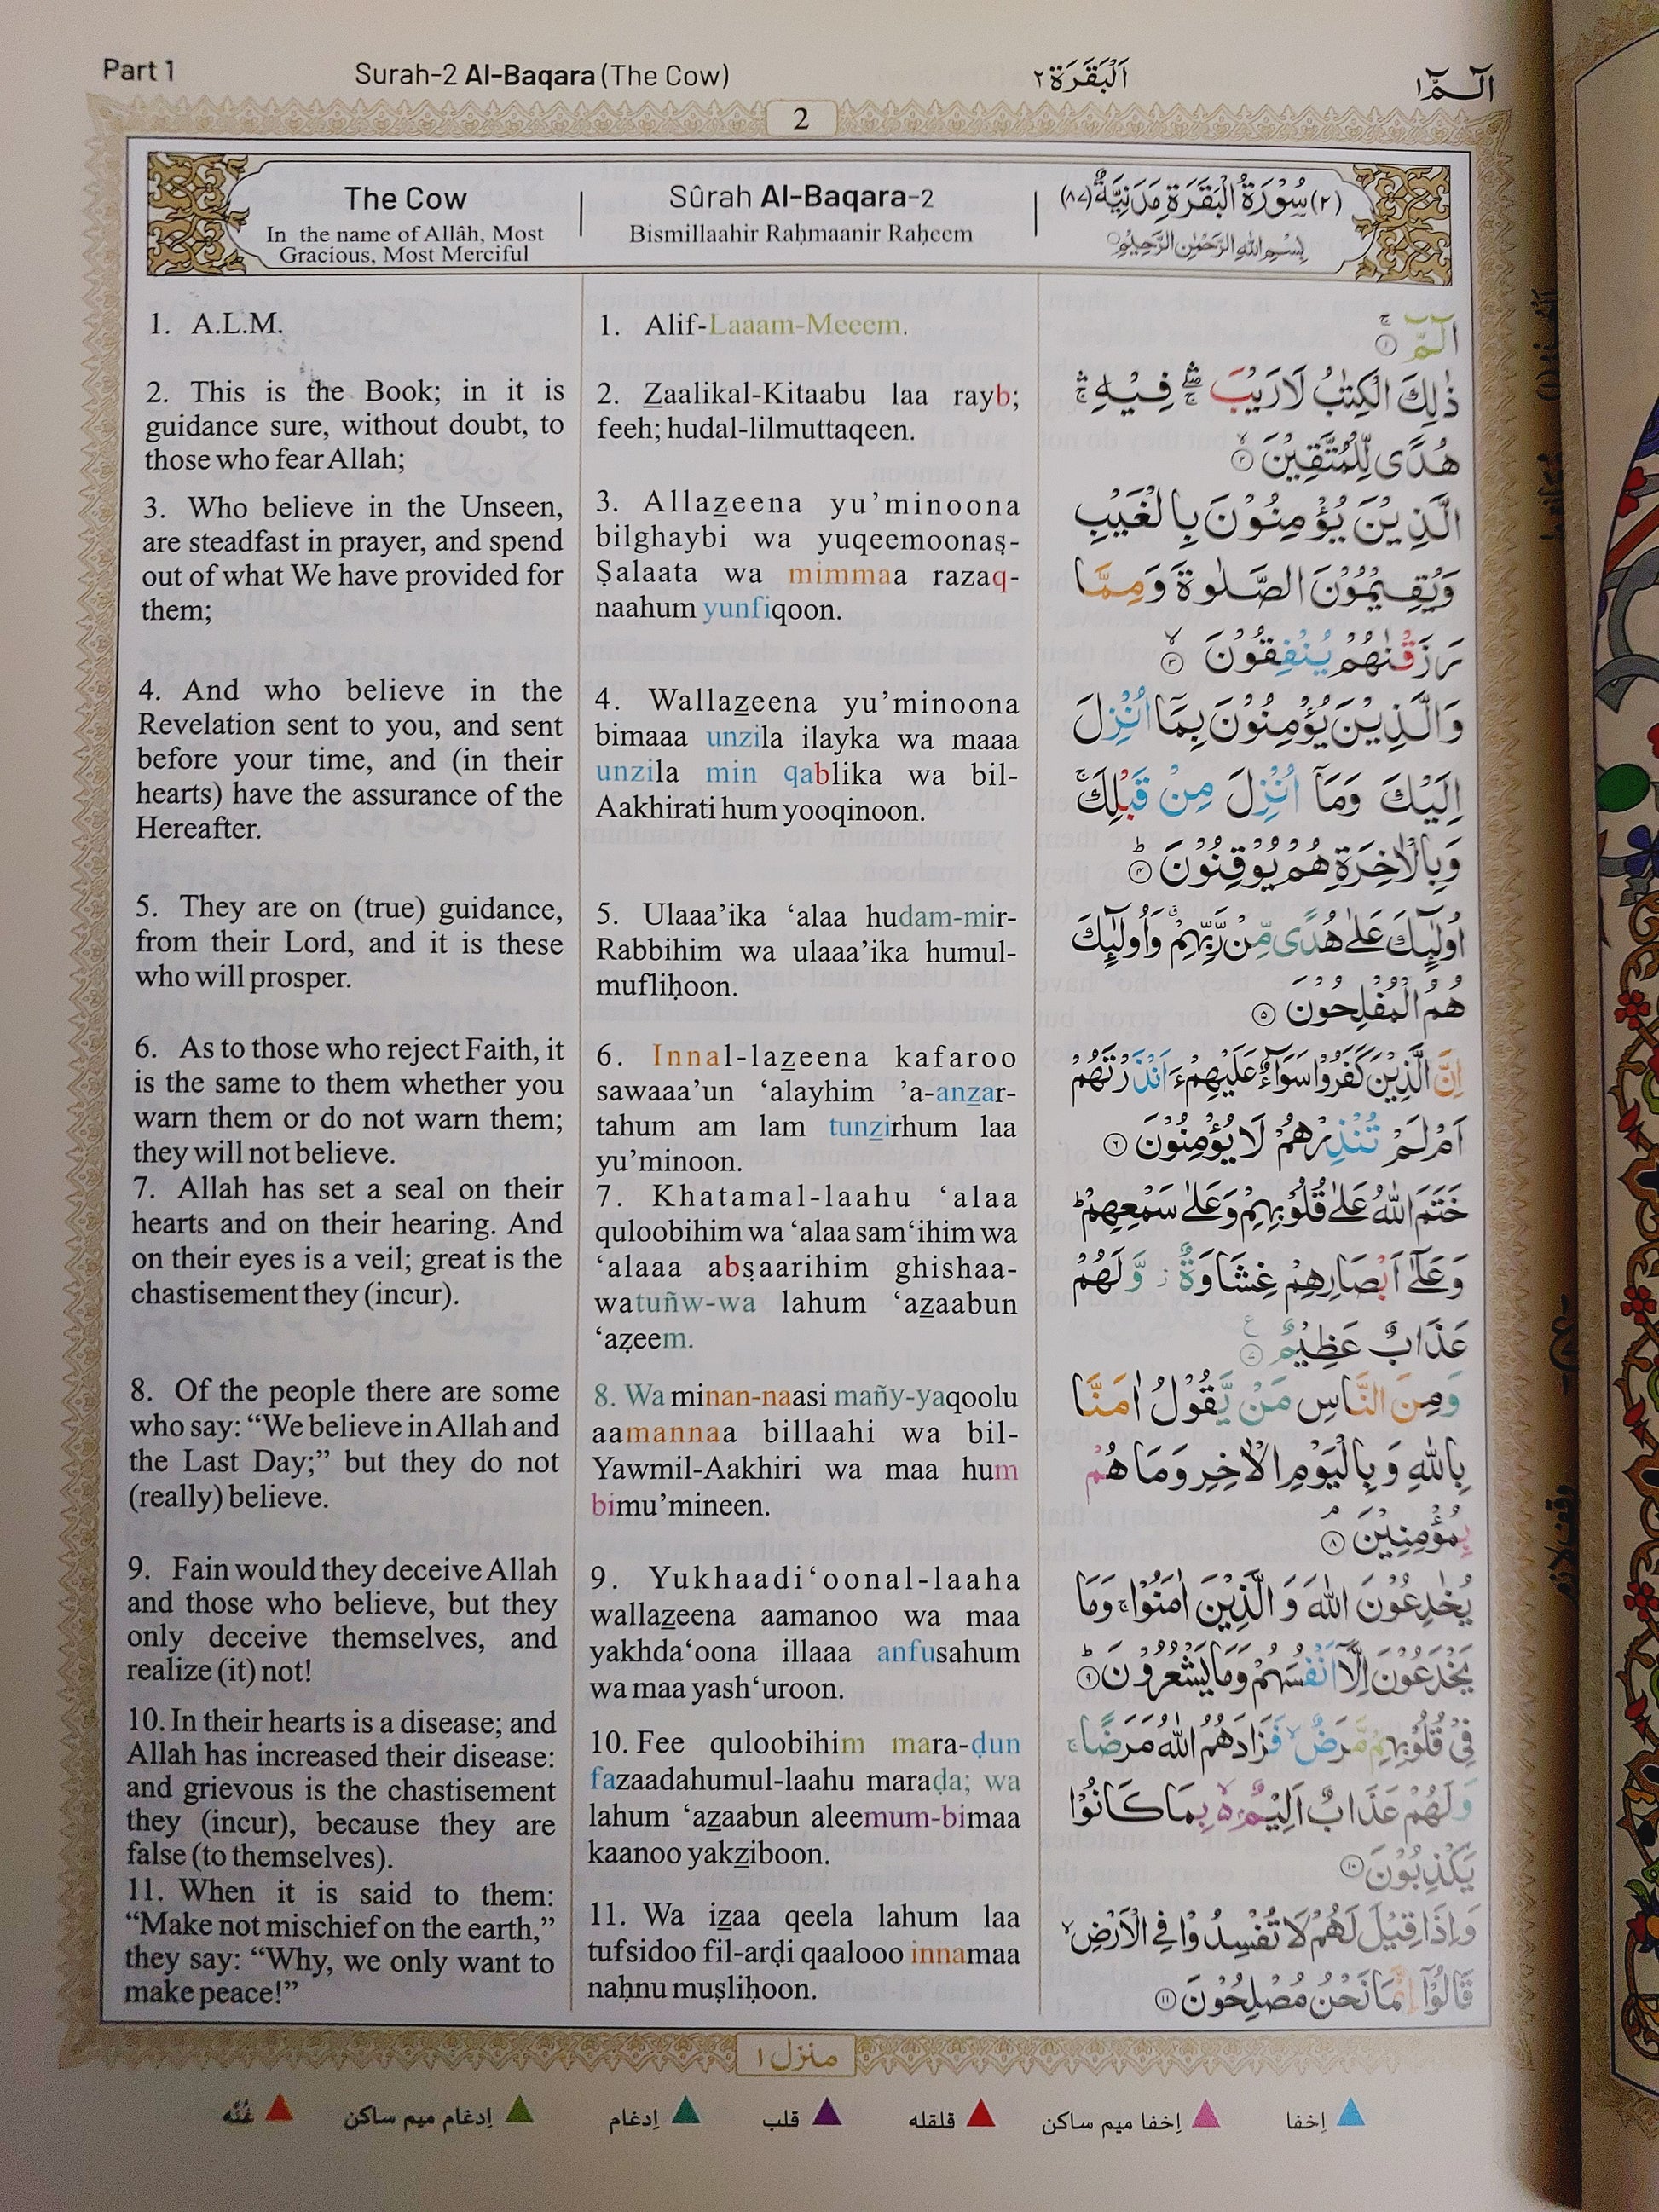 Part 1
Surah-2 Al-Baqara (The Cow)
اَلْبَقَرَة ٢
الٓـمّٓ ١
2
The Cow
In the name of Allâh, Most
Gracious, Most Merciful
Sûrah Al-Baqara-2
Bismillaahir Raḥmaanir Raḥeem
(٢) سُوْرَةُ الْبَقَرَةِ مَدَنِيَّةٌ (٨٧)
بِسْمِ اللّٰهِ الرَّحْمٰنِ الرَّحِيْمِ
1. A.L.M.
2. This is the Book; in it is
guidance sure, without doubt, to
those who fear Allah;
3. Who believe in the Unseen,
are steadfast in prayer, and spend
out of what We have provided for
them;
4. And who believe in the
Revelation sent to you, and sent
before your time, and (in their
hearts) have the assurance of the
Hereafter.
5. They are on (true) guidance,
from their Lord, and it is these
who will prosper.
6. As to those who reject Faith, it
is the same to them whether you
warn them or do not warn them;
they will not believe.
7. Allah has set a seal on their
hearts and on their hearing. And
on their eyes is a veil; great is the
chastisement they (incur).
8. Of the people there are some
who say: “We believe in Allah and
the Last Day;” but they do not
(really) believe.
9. Fain would they deceive Allah
and those who believe, but they
only deceive themselves, and
realize (it) not!
10. In their hearts is a disease; and
Allah has increased their disease:
and grievous is the chastisement
they (incur), because they are
false (to themselves).
11. When it is said to them:
“Make not mischief on the earth,”
they say: “Why, we only want to
make peace!”
1. Alif-Laaam-Meeem.
2. Zaalikal-Kitaabu laa rayb;
feeh; hudal-lilmuttaqeen.
3. Allazeena yu’minoona
bilghaybi wa yuqeemoonaṣ-
Ṣalaata wa mimmaa razaq-
naahum yunfiqoon.
4. Wallazeena yu’minoona
bimaaa unzila ilayka wa maaa
unzila min qablika wa bil-
Aakhirati hum yooqinoon.
5. Ulaaa’ika ‘alaa hudam-mir-
Rabbihim wa ulaaa’ika humul-
mufliḥoon.
6. Innal-lazeena kafaroo
sawaaa’un ‘alayhim ’a-anzar-
tahum am lam tunzirhum laa
yu’minoon.
7. Khatamal-laahu ‘alaa
quloobihim wa ‘alaa sam‘ihim wa
‘alaaa abṣaarihim ghishaa-
watuñw-wa lahum ‘azaabun
‘aẓeem.
8. Wa minan-naasi mañy-yaqoolu
aamannaa billaahi wa bil-
Yawmil-Aakhiri wa maa hum
bimu’mineen.
9. Yukhaadi‘oonal-laaha
wallazeena aamanoo wa maa
yakhda‘oona illaaa anfusahum
wa maa yash‘uroon.
10. Fee quloobihim mara-ḍun
fazaadahumul-laahu maraḍa; wa
lahum ‘azaabun aleemum-bimaa
kaanoo yakziboon.
11. Wa izaa qeela lahum laa
tufsidoo fil-arḍi qaalooo innamaa
naḥnu muṣliḥoon.
الٓمّٓ ۚ ١
ذٰلِكَ الْكِتٰبُ لَا رَيْبَ ۛۖ فِيْهِ ۛۚ
هُدًى لِّلْمُتَّقِيْنَ ۙ ٢
الَّذِيْنَ يُؤْمِنُوْنَ بِالْغَيْبِ
وَيُقِيْمُوْنَ الصَّلٰوةَ وَمِمَّا
رَزَقْنٰهُمْ يُنْفِقُوْنَ ۙ ٣
وَالَّذِيْنَ يُؤْمِنُوْنَ بِمَآ اُنْزِلَ
اِلَيْكَ وَمَآ اُنْزِلَ مِنْ قَبْلِكَ ۚ
وَبِالْاٰخِرَةِ هُمْ يُوْقِنُوْنَ ؕ ٤
اُولٰٓئِكَ عَلٰى هُدًى مِّنْ رَّبِّهِمْ ۗ وَاُولٰٓئِكَ
هُمُ الْمُفْلِحُوْنَ ٥
اِنَّ الَّذِيْنَ كَفَرُوْا سَوَآءٌ عَلَيْهِمْ ءَاَنْذَرْتَهُمْ
اَمْ لَمْ تُنْذِرْهُمْ لَا يُؤْمِنُوْنَ ٦
خَتَمَ اللّٰهُ عَلٰى قُلُوْبِهِمْ وَعَلٰى سَمْعِهِمْ ؕ
وَعَلٰٓى اَبْصَارِهِمْ غِشَاوَةٌ ز وَّلَهُمْ
عَذَابٌ عَظِيْمٌ ٧ ع
وَمِنَ النَّاسِ مَنْ يَّقُوْلُ اٰمَنَّا
بِاللّٰهِ وَبِالْيَوْمِ الْاٰخِرِ وَمَا هُمْ
بِمُؤْمِنِيْنَ ۘ ٨
يُخٰدِعُوْنَ اللّٰهَ وَالَّذِيْنَ اٰمَنُوْا ۚ وَمَا
يَخْدَعُوْنَ اِلَّآ اَنْفُسَهُمْ وَمَا يَشْعُرُوْنَ ؕ ٩
فِيْ قُلُوْبِهِمْ مَّرَضٌ ۙ فَزَادَهُمُ اللّٰهُ مَرَضًا ۚ
وَلَهُمْ عَذَابٌ اَلِيْمٌ ۢ ۙ بِمَا كَانُوْا
يَكْذِبُوْنَ ١٠
وَاِذَا قِيْلَ لَهُمْ لَا تُفْسِدُوْا فِى الْاَرْضِ ۙ
قَالُوْٓا اِنَّمَا نَحْنُ مُصْلِحُوْنَ ١١
وقف لازم
منزل ١
اِخفا
اِخفا میم ساکن
قلقله
قلب
اِدغام
اِدغام میم ساکن
غُنَّه